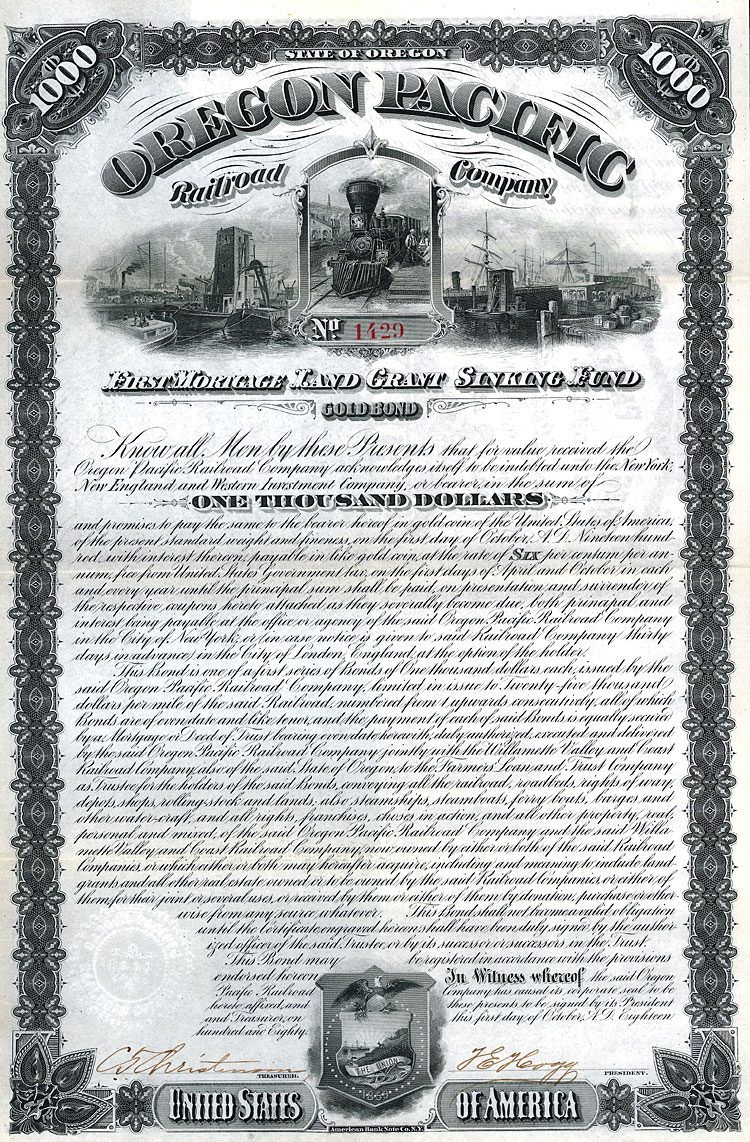 1000
STATE OF OREGON
1000
OREGON PACIFIC
Railroad Company
No 1429
FIRST MORTGAGE LAND GRANT SINKING FUND
GOLD BOND
Know all Men by these Presents that for value received the
Oregon Pacific Railroad Company acknowledges itself to be indebted unto the New York,
New England and Western Investment Company, or bearer, in the sum of
ONE THOUSAND DOLLARS
and promises to pay the same to the bearer hereof in gold coin of the United States of America,
of the present standard, weight and fineness, on the first day of October, A.D. Nineteen hund-
red, with interest thereon, payable in like gold coin, at the rate of SIX per centum per an-
num, free from United States Government tax, on the first days of April and October in each
and every year until the principal sum shall be paid, on presentation and surrender of
the respective coupons hereto attached as they severally become due, both principal and
interest being payable at the office or agency of the said Oregon Pacific Railroad Company
in the City of New York, or (in case notice is given to said Railroad Company thirty
days in advance) in the City of London, England, at the option of the holder.
This Bond is one of a first series of Bonds of One thousand dollars each, issued by the
said Oregon Pacific Railroad Company, limited in issue to Twenty-five thousand
dollars per mile of the said Railroad, numbered from 1 upwards consecutively, all of which
Bonds are of even date and like tenor, and the payment of each of said Bonds is equally secured
by a Mortgage or Deed of Trust bearing even date herewith, duly authorized, executed and delivered
by the said Oregon Pacific Railroad Company jointly with the Willamette Valley and Coast
Railroad Company, also of the said State of Oregon, to the Farmers' Loan and Trust Company
as Trustee for the holders of the said Bonds, conveying all the railroad, roadbeds, rights of way,
depots, shops, rolling-stock and lands; also steamships, steamboats, ferry boats, barges and
other water-craft, and all rights, franchises, choses in action, and all other property, real,
personal and mixed, of the said Oregon Pacific Railroad Company and the said Willa-
mette Valley and Coast Railroad Company, now owned by either or both of the said Railroad
Companies, or which either or both may hereafter acquire, including and meaning to include land
grants and all other real estate owned or to be owned by the said Railroad Companies, or either of
them, for their joint or several uses, or received by them or either of them by donation, purchase or other-
wise from any source whatever. This Bond shall not become a valid obligation
until the certificate engraved hereon shall have been duly signed by the author-
ized officer of the said Trustee, or by its successor or successors in the Trust.
This Bond may be registered in accordance with the provisions
endorsed hereon. In Witness whereof the said Oregon
Pacific Railroad Company has caused its corporate seal to be
hereto affixed, and these presents to be signed by its President
and Treasurer, on this first day of October, A.D. Eighteen
hundred and Eighty.
THE UNION
1859
TREASURER.
T E Hogg
PRESIDENT.
UNITED STATES OF AMERICA
American Bank Note Co. N.Y.